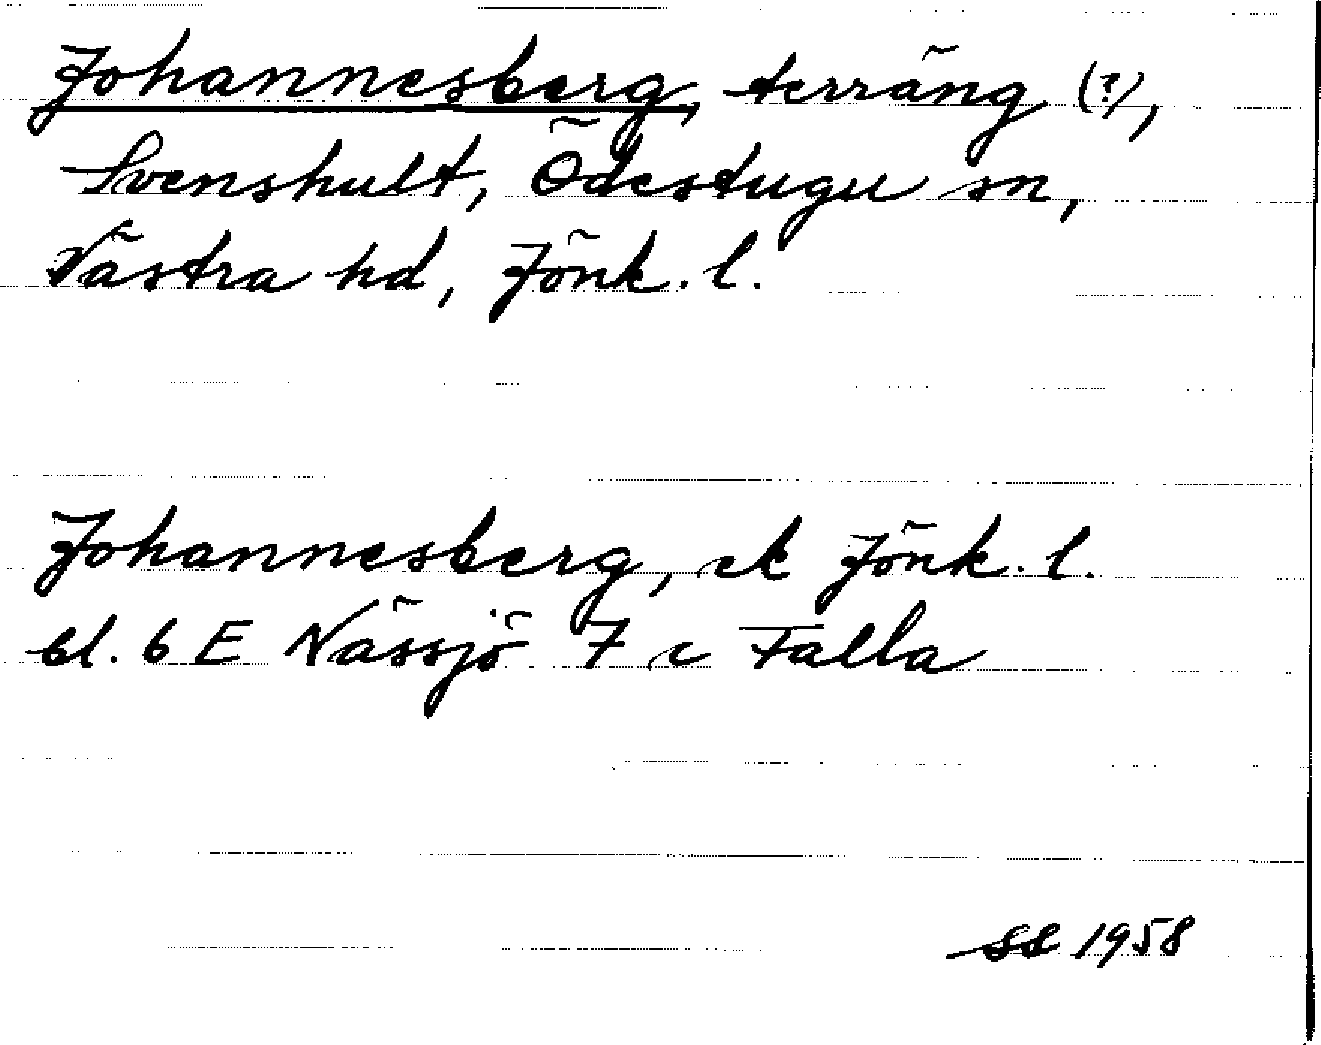 Johannesberg, terräng (?),
Svenshult, Ödestugu sn,
Västra hd, Jönk. l.
Johannesberg, ek Jönk. l.
bl. 6 E Nässjö 7 c Falla
SE 1958